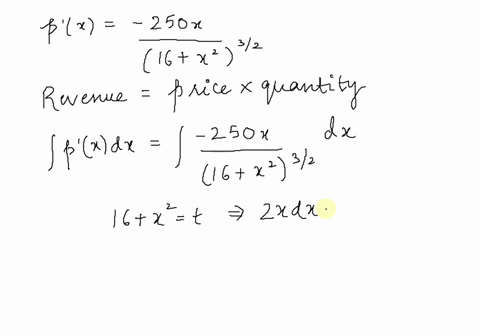 p'(x) = -250x / (16 + x²)^3/2
Revenue = price × quantity
∫ p'(x) dx = ∫ -250x / (16 + x²)^3/2 dx
16 + x² = t ⇒ 2x dx